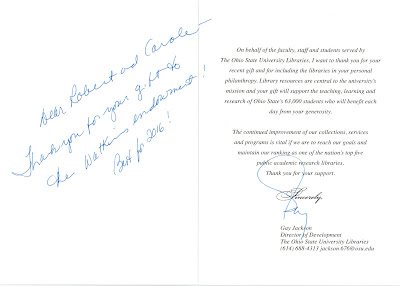 Dear Robert and Carole
Thank you for your gift to
the Watkins endowment!
Best for 2016!
On behalf of the faculty, staff and students served by
The Ohio State University Libraries, I want to thank you for your
recent gift and for including the libraries in your personal
philanthropy. Library resources are central to the university's
mission and your gift will support the teaching, learning and
research of Ohio State's 63,000 students who will benefit each
day from your generosity.
The continued improvement of our collections, services
and programs is vital if we are to reach our goals and
maintain our ranking as one of the nation's top five
public academic research libraries.
Thank you for your support.
Sincerely,
Gay Jackson
Director of Development
The Ohio State University Libraries
(614) 688-4313 jackson.676@osu.edu